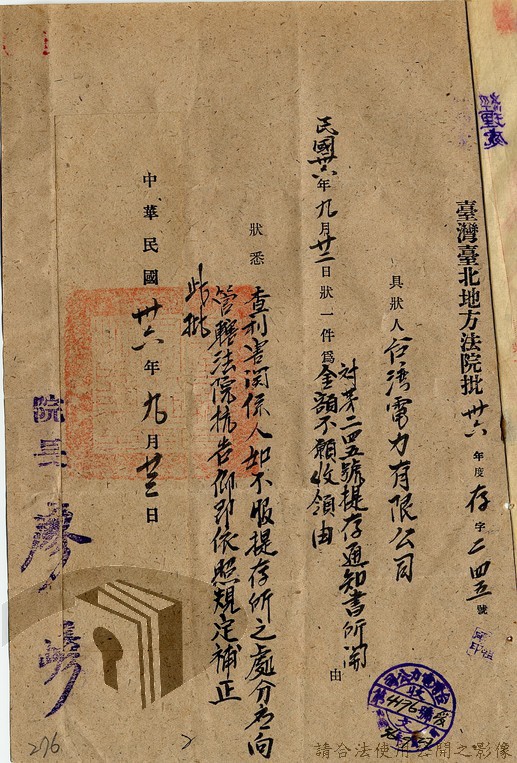 臺灣臺北地方法院批 卅六年度存字二四五號
具狀人 台湾電力有限公司
民國卅六年九月廿二日狀一件為對第二四五號提存通知書所開金額不願收領由 由
狀悉
查利害関係人如不服提存所之處分應向
管轄法院抗告仰即依照規定補正
此批
中華民國卅六年九月廿三日
院長
4496
276
2
請合法使用公開之影像